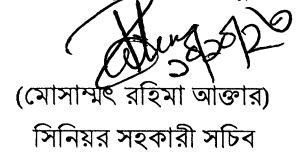 (মোসাম্মৎ রহিমা আক্তার)
সিনিয়র সহকারী সচিব